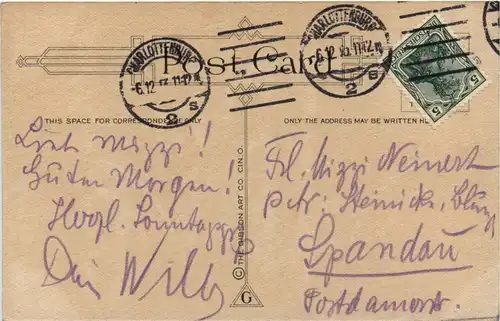 CHARLOTTENBURG
-6.12 11-12
2 s
CHARLOTTENBURG
-6.12 11-12
2 s
5
5
Post Card
THIS SPACE FOR CORRESPONDENCE ONLY
ONLY THE ADDRESS MAY BE WRITTEN HERE
Lieb Mizzi!
Guten Morgen!
Herzl. Sonntagsgr
Dein Willy
© THE GIBSON ART CO. CIN'O.
G
Frl. Mizzi Neinert
Steinicke,
Spandau
Potsdamerstr.